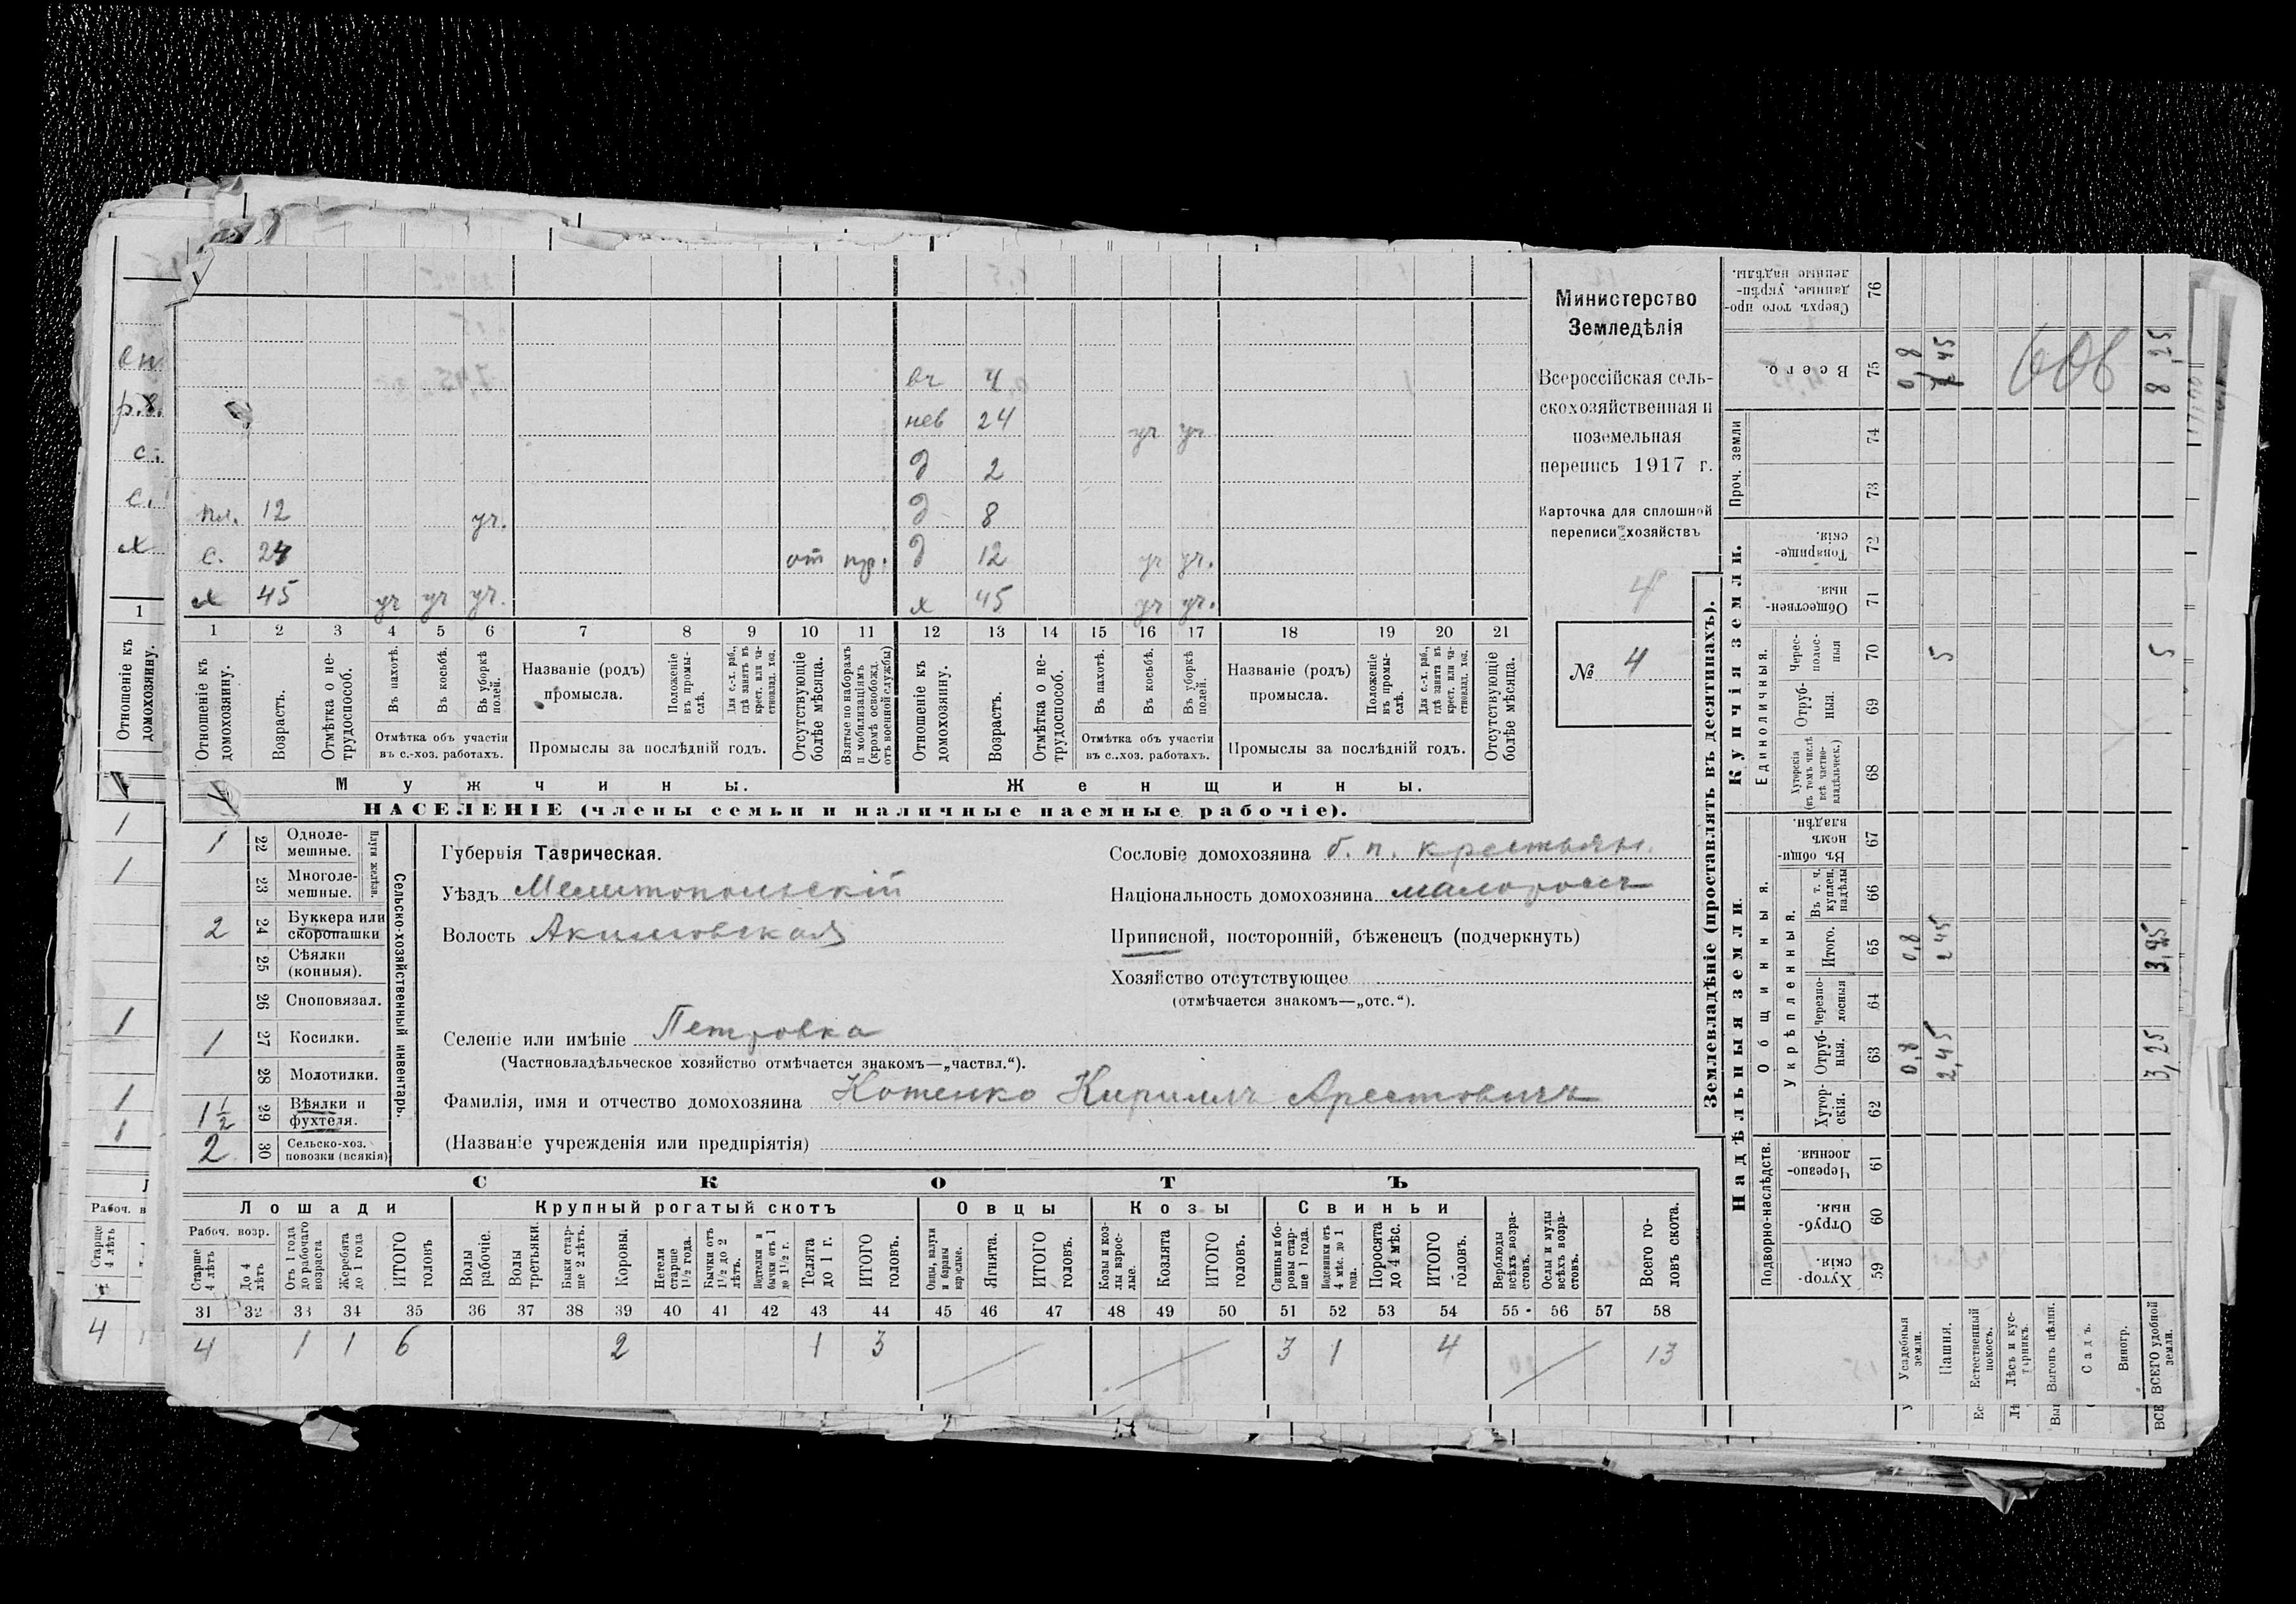 вч 4
нев 24 уч уч
д 2
пл. 12 уч. д 8
с. 24 от пр. д 12 уч уч.
х 45 уч уч уч. х 45 уч уч.
1 2 3 4 5 6 7 8 9 10 11 12 13 14 15 16 17 18 19 20 21
Отношеніе къ домохозяину.
Возрастъ.
Отмѣтка о нетрудоспособ.
Въ пахотѣ.
Въ косьбѣ.
Въ уборкѣ полей.
Отмѣтка объ участіи
въ с.-хоз. работахъ.
Названіе (родъ)
промысла.
Положеніе въ промыслѣ.
Для с.-х. раб., гдѣ занятъ въ крест. или частновлад. хоз.
Промыслы за послѣдній годъ.
Отсутствующіе болѣе мѣсяца.
Взятые по наборамъ и мобилизаціямъ (кромѣ освобожд. отъ военной службы)
Отношеніе къ домохозяину.
Возрастъ.
Отмѣтка о нетрудоспособ.
Въ пахотѣ.
Въ косьбѣ.
Въ уборкѣ полей.
Отмѣтка объ участіи
въ с..хоз. работахъ.
Названіе (родъ)
промысла.
Положеніе въ промыслѣ.
Для с.-х. раб., гдѣ занята въ крест. или частновлад. хоз.
Промыслы за послѣдній годъ.
Отсутствующіе болѣе мѣсяца.
Мужчины. Женщины.
НАСЕЛЕНІЕ (члены семьи и наличные наемные рабочіе).
Министерство
Земледѣлія
Всероссійская сель-
скохозяйственная и
поземельная
перепись 1917 г.
Карточка для сплошной
переписи хозяйствъ
4
№ 4
Сельско-хозяйственный инвентарь.
Плуги желѣзн.
1 22 Одноле-
мешные.
23 Многоле-
мешные.
2 24 Буккера или
скоропашки
25 Сѣялки
(конныя).
26 Сноповязал.
1 27 Косилки.
28 Молотилки.
1 1/2 29 Вѣялки и
фухтеля.
2 30 Сельско-хоз.
повозки (всякія)
Губернія Таврическая.
Уѣздъ Мелитопольскій
Волость Акимовская
Селеніе или имѣніе Петровка
(Частновладѣльческое хозяйство отмѣчается знакомъ—„частвл.“).
Фамилія, имя и отчество домохозяина Котенко Кириллъ Арестовичъ
(Названіе учрежденія или предпріятія)
Сословіе домохозяина б. п. крестьян.
Національность домохозяина малороссъ
Приписной, посторонній, бѣженецъ (подчеркнуть)
Хозяйство отсутствующее
(отмѣчается знакомъ—„отс.“).
СКОТЪ
Лошади Крупный рогатый скотъ Овцы Козы Свиньи
Рабоч. возр.
Старше 4 лѣтъ
До 4 лѣтъ
Отъ 1 года до рабочаго возраста
Жеребята до 1 года
ИТОГО головъ
Волы рабочіе.
Волы третьяки.
Быки старше 2 лѣтъ.
Коровы.
Нетели старше 1½ года.
Бычки отъ 1½ до 2 лѣтъ.
Подтелки и бычки отъ 1 до 1½ г.
Телята до 1 г.
ИТОГО головъ.
Овцы, валухи и бараны взрослые.
Ягнята.
ИТОГО головъ.
Козы и козлы взрослые.
Козлята
ИТОГО головъ.
Свиньи и боровы старше 1 года.
Подсвинки отъ 4 мѣс. до 1 года.
Поросята до 4 мѣс.
ИТОГО головъ.
Верблюды всѣхъ возрастовъ.
Ослы и мулы всѣхъ возрастовъ.
Всего головъ скота.
31 32 33 34 35 36 37 38 39 40 41 42 43 44 45 46 47 48 49 50 51 52 53 54 55 56 57 58
4 1 1 6 2 1 3 3 1 4 13
Землевладѣніе (проставлять въ десятинахъ).
Надѣльныя земли.
Купчія земли.
Проч. земли
Подворно-наслѣдств.
Общинныя.
Укрѣпленныя.
Единоличныя.
Хуторскія. 59
Отрубныя. 60
Черезполосныя. 61
Хуторскія. 62
Отрубныя. 63
Черезполосныя 64
Итого. 65
Въ т. ч. куплен. надѣлы 66
Въ общинномъ владѣн. 67
Хуторскія (въ томъ числѣ всѣ частновладѣльческ.) 68
Отрубныя. 69
Чересполосныя 70
Общественныя. 71
Товарищескія. 72
73
74
Всего. 75
Сверхъ того проданные, укрѣпленные надѣлы. 76
Усадебныя земли. 0,8 0,8 0,8
Пашня. 2,45 2 45 5 7 45
Естественный покосъ.
Лѣсъ и кустарникъ.
Выгонъ цѣлин.
Садъ.
Виногр.
ВСЕГО удобной земли. 3,25 3,25 5 8 25
606